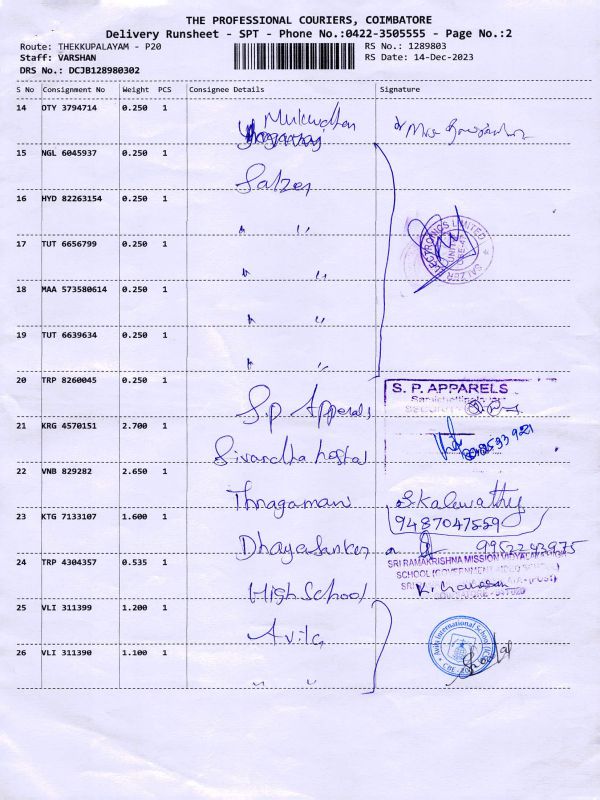 THE PROFESSIONAL COURIERS, COIMBATORE
Delivery Runsheet - SPT - Phone No.:0422-3505555 - Page No.:2
Route: THEKKUPALAYAM - P20
RS No.: 1289803
Staff: VARSHAN
RS Date: 14-Dec-2023
DRS No.: DCJB128980302
S No Consignment No Weight PCS Consignee Details Signature
14 OTY 3794714 0.250 1
15 NGL 6045937 0.250 1 Salzer
16 HYD 82263154 0.250 1 " "
17 TUT 6656799 0.250 1 " "
ELECTRONICS LIMITED
UNIT
CBE-47
SALZER
18 MAA 573580614 0.250 1 " "
19 TUT 6639634 0.250 1 " "
20 TRP 8260045 0.250 1 S.p Apperals
S. P. APPARELS
21 KRG 4570151 2.700 1 Sivandha hostal
22 VNB 829282 2.650 1 Thnagamani S.Kalawathy
9487047559
23 KTG 7133107 1.600 1 Dhayasankar 9952243975
24 TRP 4304357 0.535 1 High School
SRI RAMAKRISHNA MISSION VIDYALAYA
SCHOOL
25 VLI 311399 1.200 1 Avila
Avila International School
26 VLI 311390 1.100 1 " "